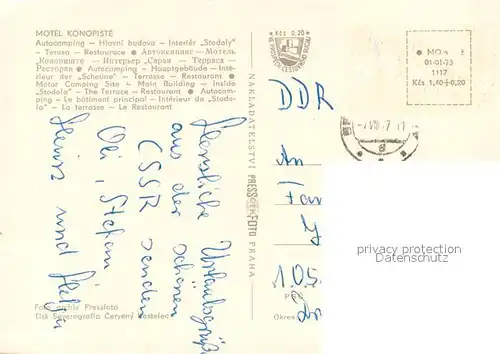 MOTEL KONOPIŠTĚ
Autocamping — Hlavní budova — Interiér „Stodoly"
— Terasa — Restaurace ● Автокемпинг — Мотель
„Конопиште — Интерьер „Сарая — Терраса —
Ресторан ● Autocamping — Hauptgebäude — Inte-
rieur der „Scheune" — Terrasse — Restaurant ●
Motor Camping Site — Main Building — Inside
„Stodola" — The Terrace — Restaurant ● Autocam-
ping — Le bâtiment principal — Intérieur de "Stodo-
la" — La terrasse — Le Restaurant
Herzliche Urlaubsgrüße
aus der schönen
CSSR senden
Stefan
Heinz und Helga
Foto archiv Pressfoto
Tisk Severografia Červený Kostelec
NAKLADATELSTVÍ PRESSFOTO PRAHA
Kčs 0,20
01-01-73
1117
Kčs 1,40+0,20
DDR
An
Fam
105
Okres
privacy protection
Datenschutz